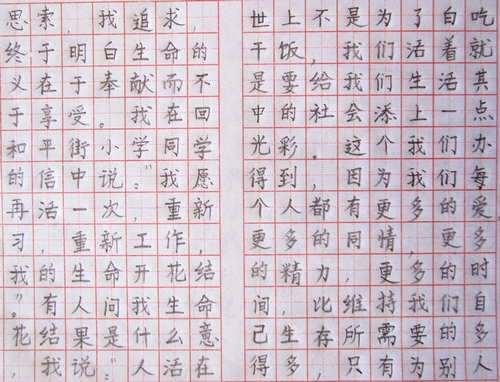 思索,我追求,
终于明白生命的
义在于奉献而不
于享受。我在回
和平街小学同学
的信中说:“我愿
再活一次,重新
习,重新工作,
我的生命开花结
”。有人问我生命
花结果是什么意
,我说:“人活在
世上不是为了白吃
干饭,我们活着就
是要给我们生活其
中的社会添上一点
光彩。这个我们办
得到,因为我们每
个人都有更多的爱
更多的同情,更多
的精力,更多的时
间,比维持我们自
己生存所需要的多
得多,只有为别人